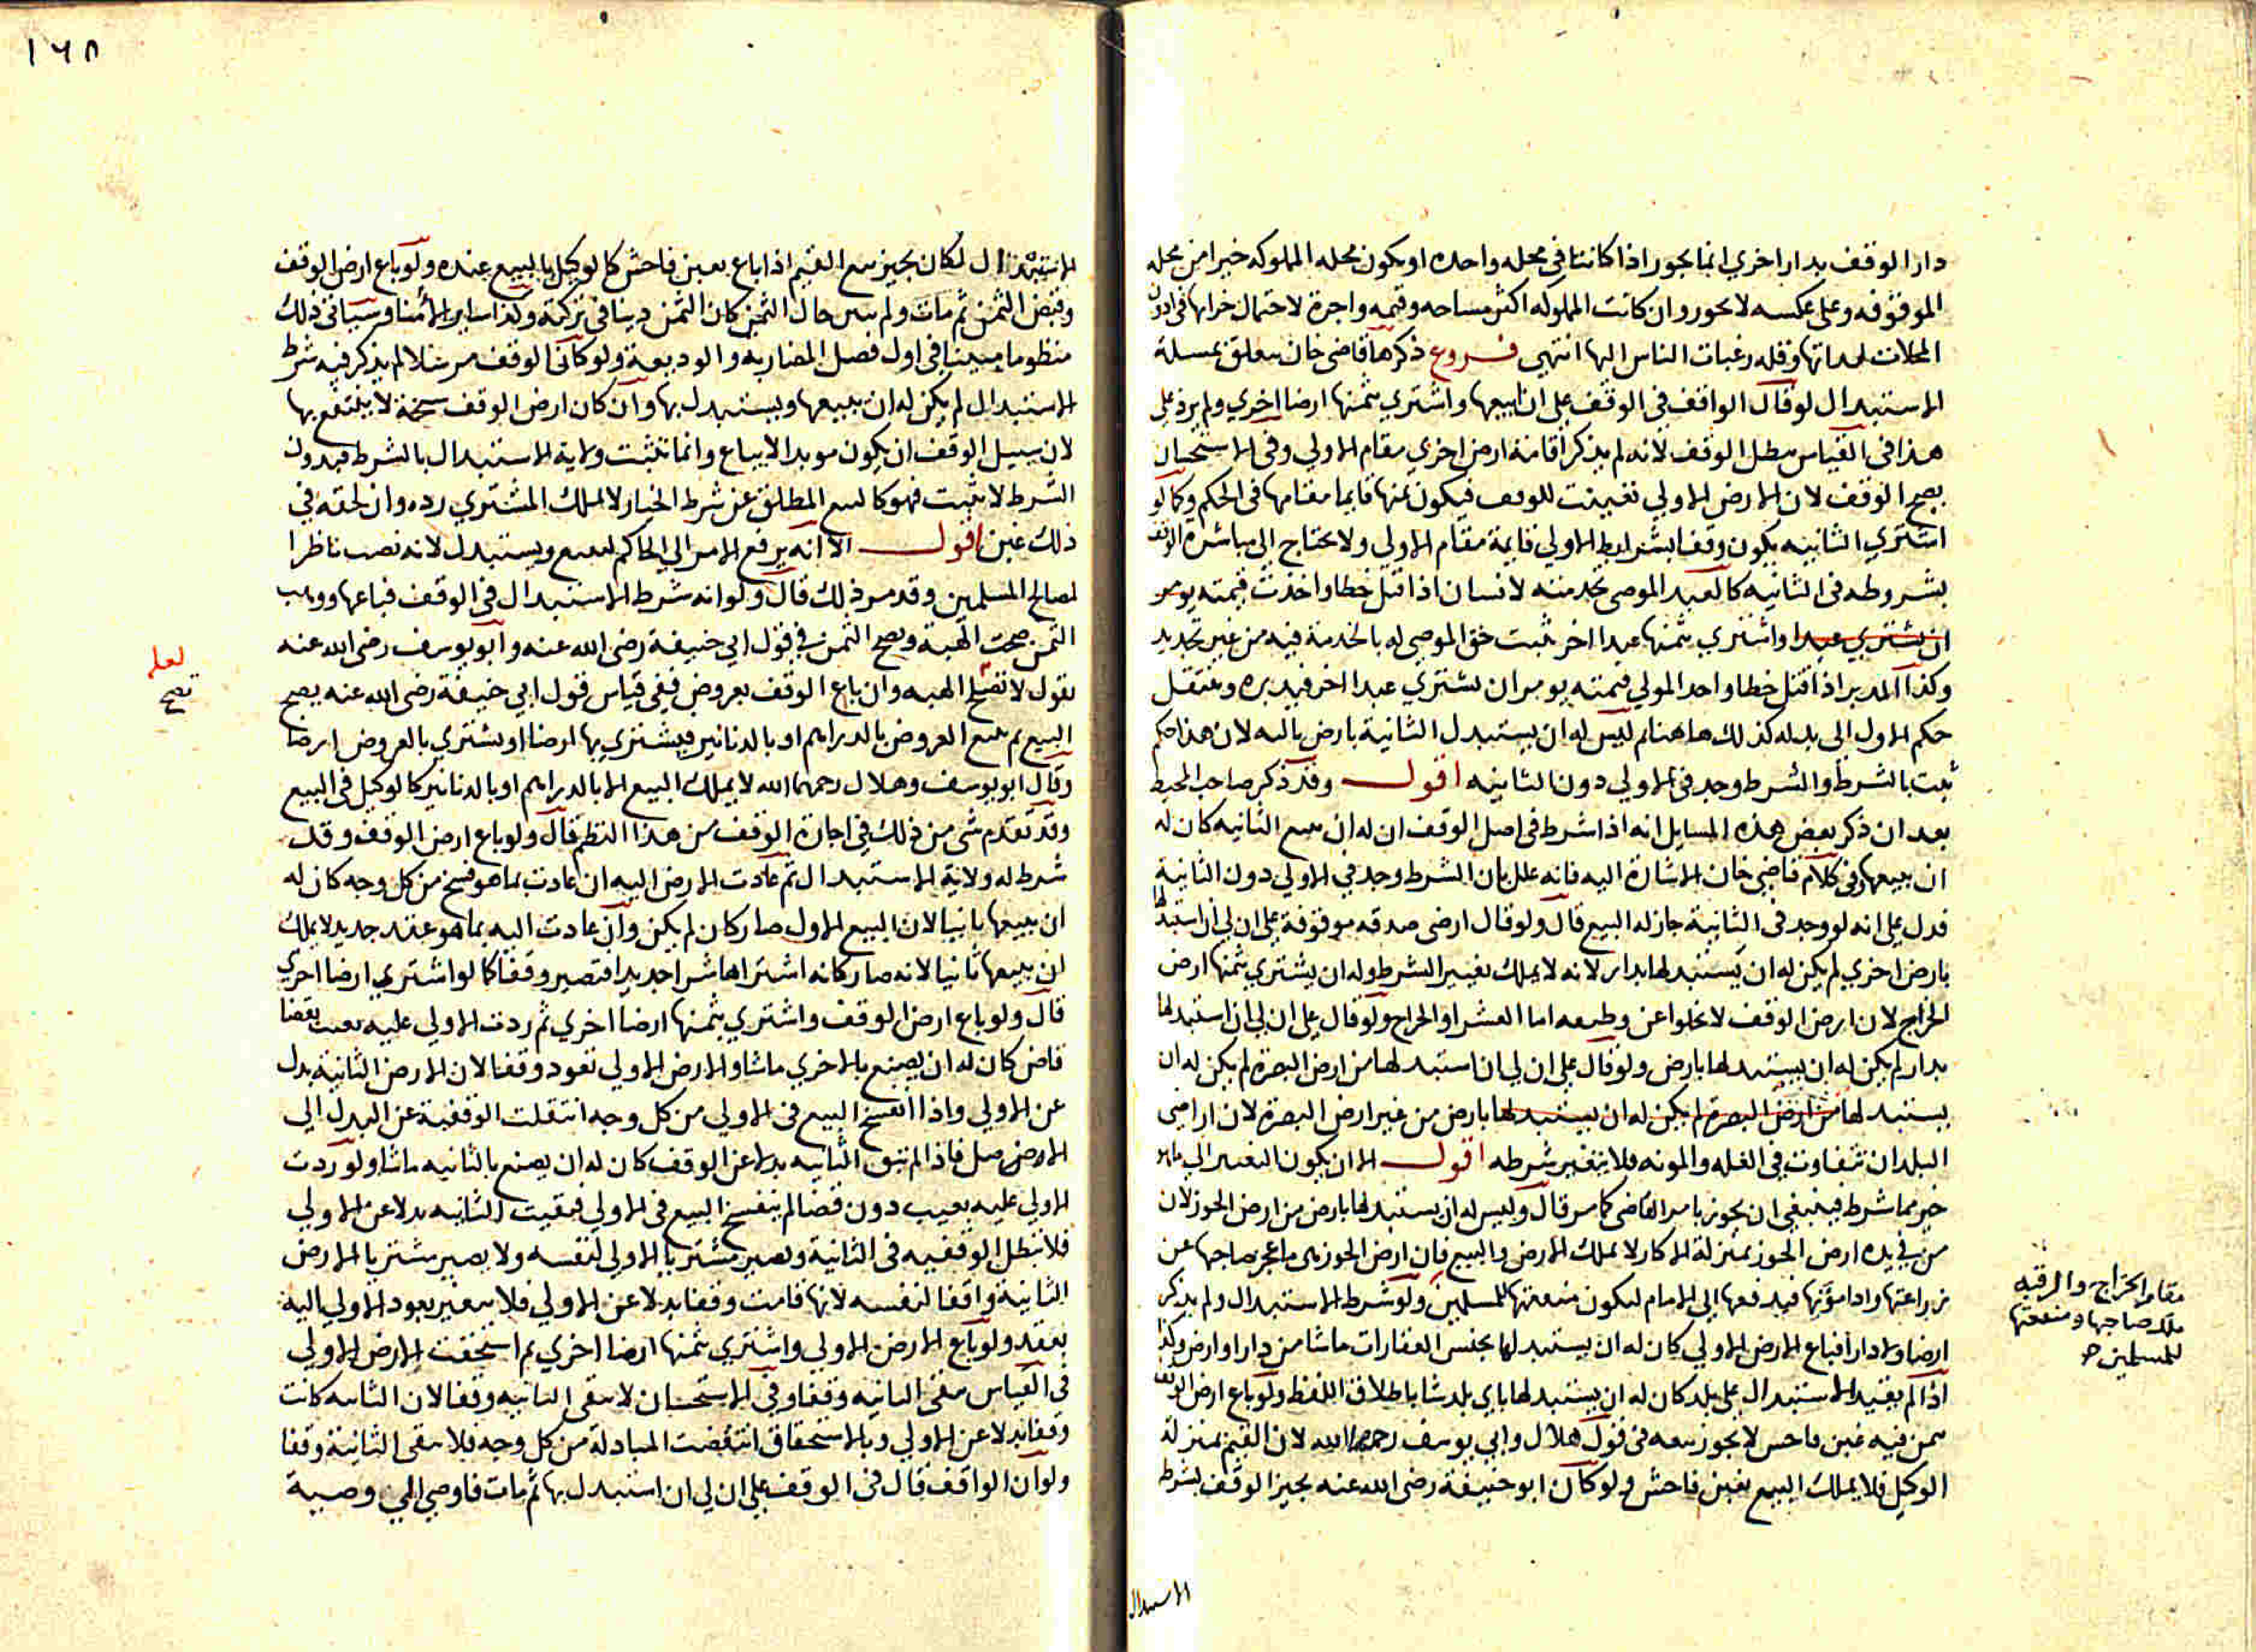 دار الوقف بدار اخري انما يجور اذا كانتا في محله واحده او يكون محله المملوكه خيرا من محله
الموقوفه وعلى عكسه لا يحور وان كانت المملوكه اكثر مساحه وقيمه واجرة لاحتمال خرابها في ادون
المحلات لدناتها وقله رغبات الناس اليها انتهى فروع ذكرها قاضى خان يتعلق بمسلة
الاستبدال لو قال الواقف في الوقف على ان ابيعها واشتري بثمنها ارضا اخري ولم يزد على
هذا في القياس يبطل الوقف لانه لم يذكر اقامة ارض اخري مقام الاولي وفى الاستحسان
يصح الوقف لان الارض الاولي تعينت للوقف فيكون ثمنها قايما مقامها فى الحكم وكما لو
اشتري الثانيه يكون وقفا بشرايط الاولي قايمة مقام الاولي ولا يحتاج الى مباشرة الوقف
بشروطه فى الثانيه كالعبد الموصى بخدمته لانسان اذا قتل خطا واخذت قيمته يومر
ان يشتري عبدا واشتري بثمنها عبدا اخر ثبت حق الموصى له بالخدمة فيه من غير تجديد
وكذا المدبر اذا قتل خطا واخد المولي قيمته يومر ان يشتري عبدا اخر فيدبره وينتقل
حكم الاول الى بدله كذلك هاهنا ثم ليس له ان يستبدل الثانية بارض ثالثه لان هذا حكم
ثبت بالشرط والشرط وجد فى الاولي دون الثانيه اقول وقد ذكر صاحب المحيط
بعد ان ذكر بعض هذه المسايل انه اذا شرط فى اصل الوقف ان له ان يبيع الثانيه كان له
ان يبيعها وفى كلام قاضى خان الاشارة اليه فانه علل بان الشرط وجد في الاولي دون الثانية
فدل على انه لو وجد فى الثانية جاز له البيع قال ولو قال ارضى صدقه موقوفة على ان لي ان استبدلها
بارض اخري لم يكن له ان يستبدلها بدار لانه لا يملك تغيير الشرط وله ان يشتري بثمنها ارض
الخراج لان ارض الوقف لا تخلوا عن وظيفه اما العشر او الخراج ولو قال على ان لي ان استبدلها
بدار لم يكن له ان يستبدلها بارض ولو قال على ان لي ان استبدلها من ارض البصرة لم يكن له ان
يستبدلها من ارض البصرة لم يكن له ان يستبدلها بارض من غير ارض البصرة لان اراضى
البلدان تتفاوت في الغله والمونه فلا يتغير شرطه اقول الا ان يكون التغيير الي ما هو
خير مما شرط فينبغي ان يجوز بامر القاضى كما مر قال وليس له ان يستبدلها بارض من ارض الحوز لان
من في يده ارض الحوز بمنزلة الاكار لا يملك الارض والبيع فان ارض الحوز هى ما عجز صاحبها عن
زراعتها وادا مؤنتها فيدفعها الي الامام لتكون منفعتها للمسلمين ولو شرط الاستبدال ولم يذكر
ارضا ولا دارا فباع الارض الاولي كان له ان يستبدلها بجنس العقارات ماشا من دار او ارض وكذا
اذا لم يقيد الاستبدال على بلد كان له ان يستبدلها باي بلد شا باطلاق اللفظ ولو باع ارض الوقف
بثمن فيه غبن فاحش لا يجوز بيعه فى قول هلال وابي يوسف رحمهما الله لان القيم بمنزلة
الوكيل فلا يملك البيع بغبن فاحش ولو كان ابو حنيفة رضى الله عنه يجيز الوقف بشرط
الاستبدال
مقام الخراج والرقبه
ملك صاحبها ومنفعتها
للمسلمين صح
١٦٨
الاستبدال لكان يجيز بيع القيم اذا باع بغبن فاحش كالوكيل بالبيع عنده ولو باع ارض الوقف
وقبض الثمن ثم مات ولم يبين حال الثمن كان الثمن دينا في تركته وكذا ساير الأمنا وسياتى ذلك
منظوما مبينا فى اول فصل المضاربه والوديعة ولو كان الوقف مرسلا لم يذكر فيه شرط
الاستبدال لم يكن له ان يبيعها ويستبدل بها وان كان ارض الوقف سبخة لا ينتفع بها
لان سبيل الوقف ان يكون موبدا لا يباع وانما تثبت ولاية الاستبدال بالشرط فبدون
الشرط لا تثبت فهو كالبيع المطلق عن شرط الخيار لا يملك المشتري رده وان لحقه في
ذلك غبن اقول الا انه يرفع الامر الي الحاكم ليبيع ويستبدل لانه نصب ناظرا
لمصالح المسلمين وقد مر ذلك قال ولو انه شرط الاستبدال فى الوقف فباعها ووهب
الثمن صحت الهبة ويصح الثمن في قول ابي حنيفة رضى الله عنه وابو يوسف رضى الله عنه
يقول لا تصح الهبه وان باع الوقف بعروض ففى قياس قول ابي حنيفة رضى الله عنه يصح
البيع ثم يبيع العروض بالدراهم او بالدنانير فيشتري بها ارضا او يشتري بالعروض ارضا
وقال ابو يوسف وهلال رحمهما الله لا يملك البيع الا بالدراهم او بالدنانير كالوكيل فى البيع
وقد تقدم شى من ذلك في اجارة الوقف من هذا النظم قال ولو باع ارض الوقف وقد
شرط له ولاية الاستبدال ثم عادت الارض اليه ان عادت بما هو فسخ من كل وجه كان له
ان يبيعها ثانيا لان البيع الاول صار كان لم يكن وان عادت اليه بما هو عقد جديد لا يملك
ان يبيعها ثانيا لانه صار كانه اشتراها شرا جديدا فتصير وقفا كما لو اشتري ارضا اخري
قال ولو باع ارض الوقف واشتري بثمنها ارضا اخري ثم ردت الاولي عليه بعيب بقضا
قاض كان له ان يصنع بالاخري ماشا والارض الاولي تعود وقفا لان الارض الثانية بدل
عن الاولي واذا انفسخ البيع فى الاولي من كل وجه انتقلت الوقفية عن البدل الى
الارض صل فاذا لم تبق الثانيه بدلا عن الوقف كان له ان يصنع بالثانيه ماشا ولو ردت
الاولي عليه بعيب دون قضا لم ينفسخ البيع فى الاولي فبقيت الثانيه بدلا عن الاولي
فلا تبطل الوقفيه فى الثانية ويصير مشتريا الاولي لنفسه ولا يصير مشتريا الارض
الثانية واقفا لنفسه لانها قامت وقفا بدلا عن الاولي فلا يتغير بعود الاولي اليه
بعقد ولو باع الارض الاولي واشتري بثمنها ارضا اخري ثم استحقت الارض الاولي
فى القياس تبقى الثانيه وقفا وفي الاستحسان لا تبقى الثانيه وقفا لان الثانيه كانت
وقفا بدلا عن الاولي وبالاستحقاق انتقضت المبادلة من كل وجه فلا تبقى الثانية وقفا
ولو ان الواقف قال فى الوقف على ان لي ان استبدل بها ثم مات فاوصى الي وصيه
لعله
تصح